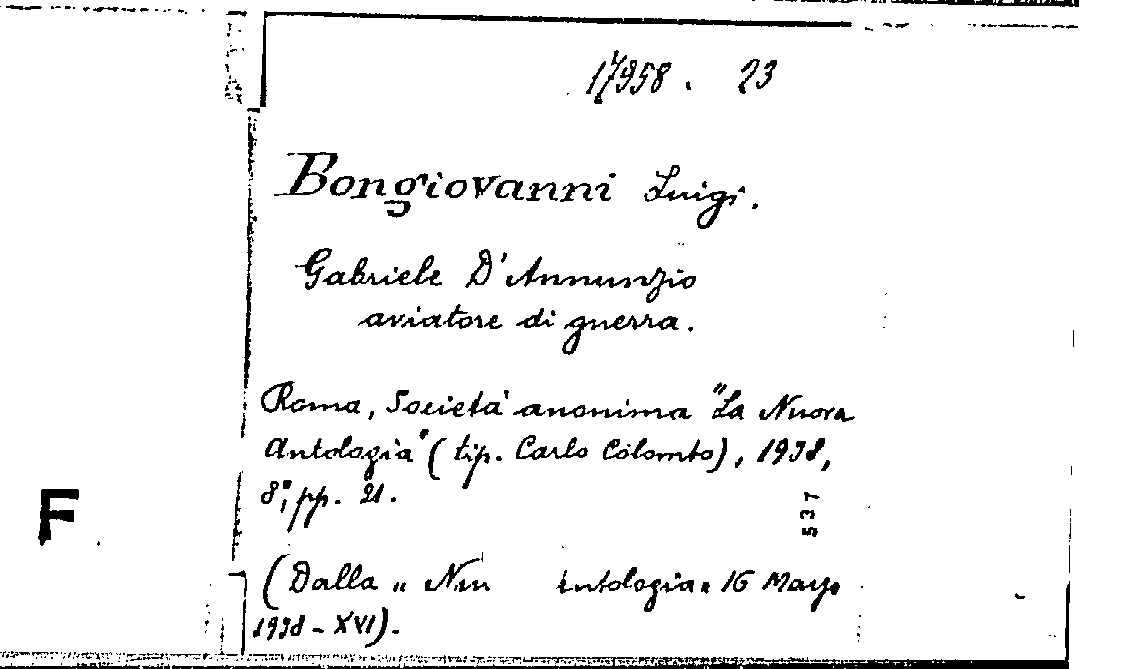 17958. 23
Bongiovanni Luigi.
Gabriele D'Annunzio
aviatore di guerra.
Roma, Società anonima "La Nuova
Antologia" (tip. Carlo Colombo), 1938,
8°, pp. 21.
537
F
(Dalla „ Nu ntologia„ 16 Marzo
1938 - XVI).